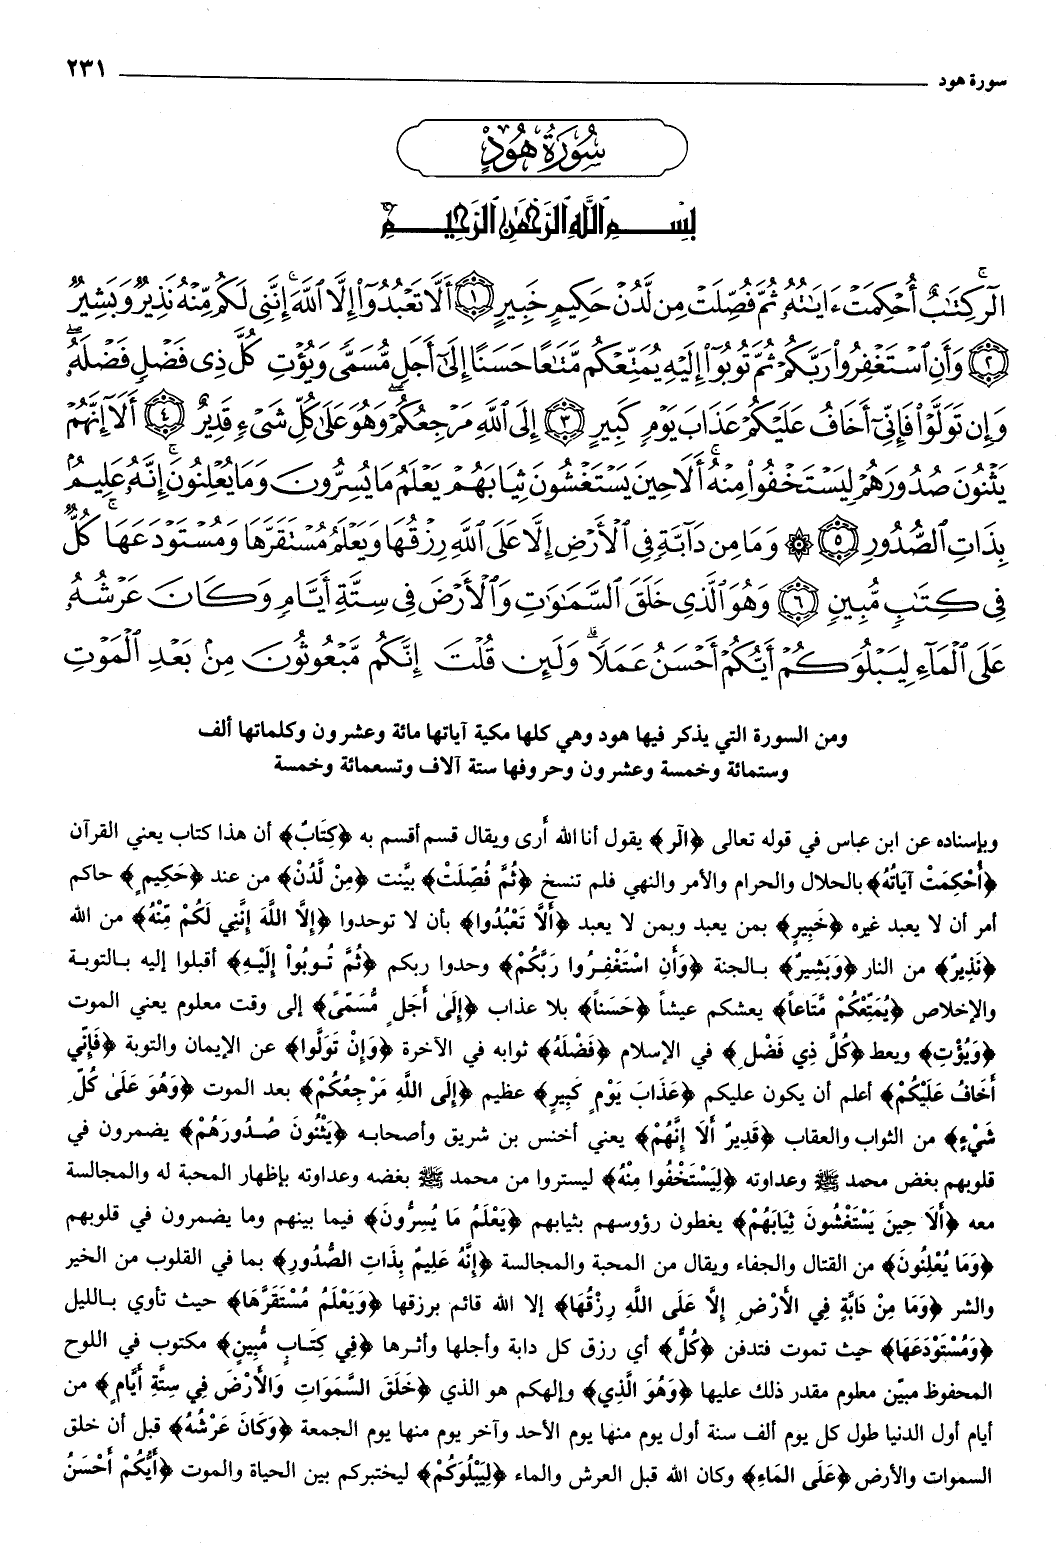 سورة هود ٢٣١
سُورَةُ هُودٍ
بِسْمِ اللَّهِ الرَّحْمَٰنِ الرَّحِيمِ
الٓر كِتَٰبٌ أُحْكِمَتْ ءَايَٰتُهُۥ ثُمَّ فُصِّلَتْ مِن لَّدُنْ حَكِيمٍ خَبِيرٍ ١ أَلَّا تَعْبُدُوٓا۟ إِلَّا ٱللَّهَ إِنَّنِى لَكُم مِّنْهُ نَذِيرٌ وَبَشِيرٌ
٢ وَأَنِ ٱسْتَغْفِرُوا۟ رَبَّكُمْ ثُمَّ تُوبُوٓا۟ إِلَيْهِ يُمَتِّعْكُم مَّتَٰعًا حَسَنًا إِلَىٰٓ أَجَلٍ مُّسَمًّى وَيُؤْتِ كُلَّ ذِى فَضْلٍ فَضْلَهُۥ
وَإِن تَوَلَّوْا۟ فَإِنِّىٓ أَخَافُ عَلَيْكُمْ عَذَابَ يَوْمٍ كَبِيرٍ ٣ إِلَى ٱللَّهِ مَرْجِعُكُمْ وَهُوَ عَلَىٰ كُلِّ شَىْءٍ قَدِيرٌ ٤ أَلَآ إِنَّهُمْ
يَثْنُونَ صُدُورَهُمْ لِيَسْتَخْفُوا۟ مِنْهُ أَلَا حِينَ يَسْتَغْشُونَ ثِيَابَهُمْ يَعْلَمُ مَا يُسِرُّونَ وَمَا يُعْلِنُونَ إِنَّهُۥ عَلِيمٌۢ
بِذَاتِ ٱلصُّدُورِ ٥ ۞ وَمَا مِن دَآبَّةٍ فِى ٱلْأَرْضِ إِلَّا عَلَى ٱللَّهِ رِزْقُهَا وَيَعْلَمُ مُسْتَقَرَّهَا وَمُسْتَوْدَعَهَا كُلٌّ
فِى كِتَٰبٍ مُّبِينٍ ٦ وَهُوَ ٱلَّذِى خَلَقَ ٱلسَّمَٰوَٰتِ وَٱلْأَرْضَ فِى سِتَّةِ أَيَّامٍ وَكَانَ عَرْشُهُۥ
عَلَى ٱلْمَآءِ لِيَبْلُوَكُمْ أَيُّكُمْ أَحْسَنُ عَمَلًا وَلَئِن قُلْتَ إِنَّكُم مَّبْعُوثُونَ مِنۢ بَعْدِ ٱلْمَوْتِ
ومن السورة التي يذكر فيها هود وهي كلها مكية آياتها مائة وعشرون وكلماتها ألف
وستمائة وخمسة وعشرون وحروفها ستة آلاف وتسعمائة وخمسة
وبإسناده عن ابن عباس في قوله تعالى ﴿الٓر﴾ يقول أنا الله أرى ويقال قسم أقسم به ﴿كِتَابٌ﴾ أن هذا كتاب يعني القرآن
﴿أُحْكِمَتْ آيَاتُهُ﴾ بالحلال والحرام والأمر والنهي فلم تنسخ ﴿ثُمَّ فُصِّلَتْ﴾ بيَّنت ﴿مِنْ لَّدُنْ﴾ من عند ﴿حَكِيمٍ﴾ حاكم
أمر أن لا يعبد غيره ﴿خَبِيرٍ﴾ بمن يعبد وبمن لا يعبد ﴿أَلَّا تَعْبُدُوا﴾ بأن لا توحدوا ﴿إِلَّا اللَّهَ إِنَّنِي لَكُمْ مِّنْهُ﴾ من الله
﴿نَذِيرٌ﴾ من النار ﴿وَبَشِيرٌ﴾ بالجنة ﴿وَأَنِ اسْتَغْفِرُوا رَبَّكُمْ﴾ وحدوا ربكم ﴿ثُمَّ تُوبُواْ إِلَيْهِ﴾ أقبلوا إليه بالتوبة
والإخلاص ﴿يُمَتِّعْكُمْ مَّتَاعاً﴾ يعشكم عيشاً ﴿حَسَناً﴾ بلا عذاب ﴿إِلَىٰ أَجَلٍ مُّسَمًّى﴾ إلى وقت معلوم يعني الموت
﴿وَيُؤْتِ﴾ ويعط ﴿كُلَّ ذِي فَضْلٍ﴾ في الإسلام ﴿فَضْلَهُ﴾ ثوابه في الآخرة ﴿وَإِنْ تَوَلَّوا﴾ عن الإيمان والتوبة ﴿فَإِنِّي
أَخَافُ عَلَيْكُمْ﴾ أعلم أن يكون عليكم ﴿عَذَابَ يَوْمٍ كَبِيرٍ﴾ عظيم ﴿إِلَى اللَّهِ مَرْجِعُكُمْ﴾ بعد الموت ﴿وَهُوَ عَلَىٰ كُلِّ
شَيْءٍ﴾ من الثواب والعقاب ﴿قَدِيرٌ أَلَا إِنَّهُمْ﴾ يعني أخنس بن شريق وأصحابه ﴿يَثْنُونَ صُدُورَهُمْ﴾ يضمرون في
قلوبهم بغض محمد ﷺ وعداوته ﴿لِيَسْتَخْفُوا مِنْهُ﴾ ليستروا من محمد ﷺ بغضه وعداوته بإظهار المحبة له والمجالسة
معه ﴿أَلَا حِينَ يَسْتَغْشُونَ ثِيَابَهُمْ﴾ يغطون رؤوسهم بثيابهم ﴿يَعْلَمُ مَا يُسِرُّونَ﴾ فيما بينهم وما يضمرون في قلوبهم
﴿وَمَا يُعْلِنُونَ﴾ من القتال والجفاء ويقال من المحبة والمجالسة ﴿إِنَّهُ عَلِيمٌ بِذَاتِ الصُّدُورِ﴾ بما في القلوب من الخير
والشر ﴿وَمَا مِنْ دَابَّةٍ فِي الأَرْضِ إِلَّا عَلَى اللَّهِ رِزْقُهَا﴾ إلا الله قائم برزقها ﴿وَيَعْلَمُ مُسْتَقَرَّهَا﴾ حيث تأوي بالليل
﴿وَمُسْتَوْدَعَهَا﴾ حيث تموت فتدفن ﴿كُلٌّ﴾ أي رزق كل دابة وأجلها وأثرها ﴿فِي كِتَابٍ مُّبِينٍ﴾ مكتوب في اللوح
المحفوظ مبيّن معلوم مقدر ذلك عليها ﴿وَهُوَ الَّذِي﴾ وإلهكم هو الذي ﴿خَلَقَ السَّمَوَاتِ وَالأَرْضَ فِي سِتَّةِ أَيَّامٍ﴾ من
أيام أول الدنيا طول كل يوم ألف سنة أول يوم منها يوم الأحد وآخر يوم منها يوم الجمعة ﴿وَكَانَ عَرْشُهُ﴾ قبل أن خلق
السموات والأرض ﴿عَلَى المَاءِ﴾ وكان الله قبل العرش والماء ﴿لِيَبْلُوَكُمْ﴾ ليختبركم بين الحياة والموت ﴿أَيُّكُمْ أَحْسَنُ